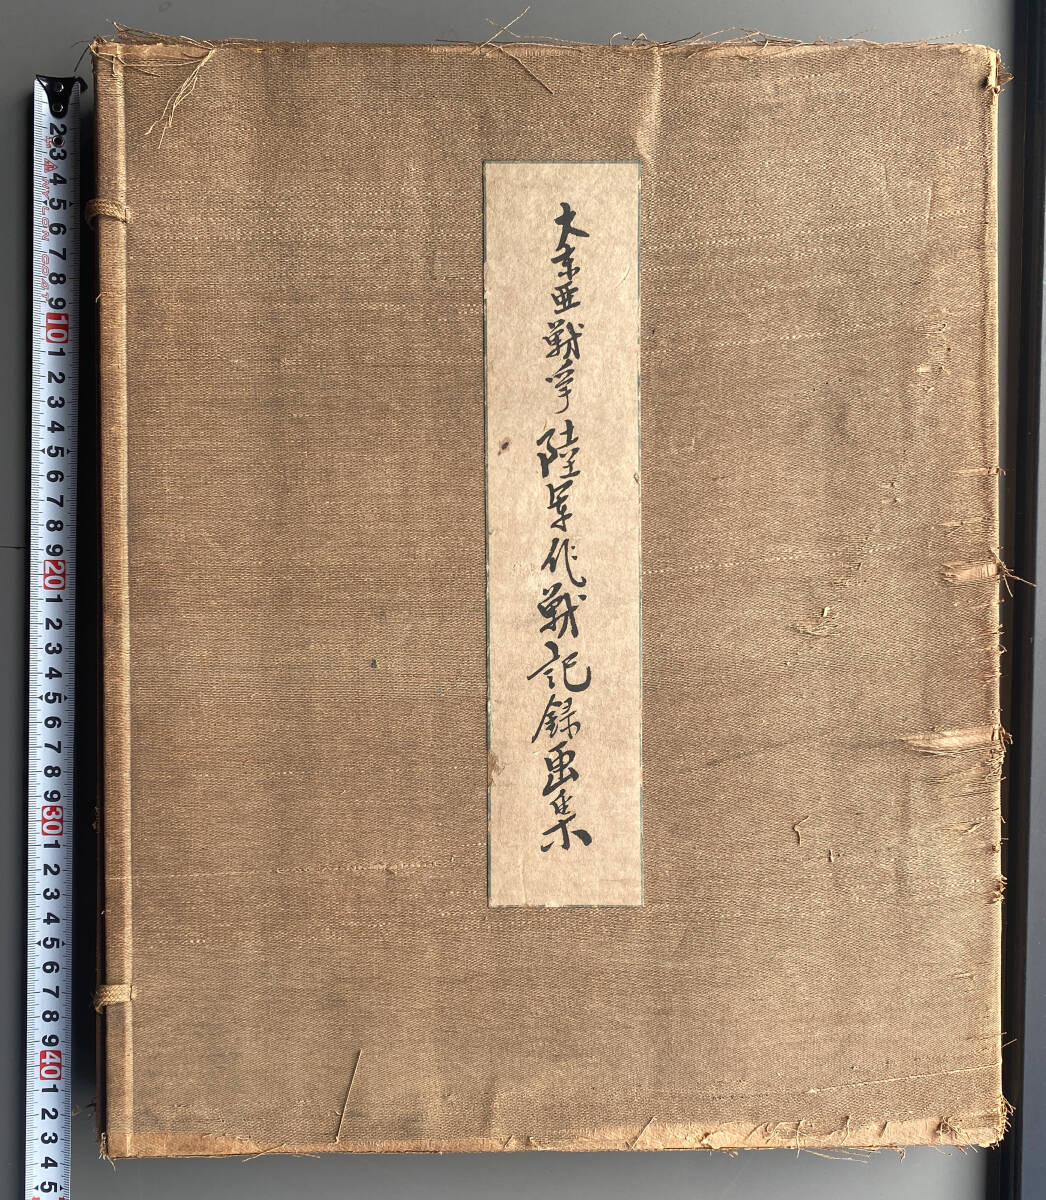 大東亜戦争陸軍作戦記録画集
2
3
4
5
6
7
8
9
10
1
2
3
4
5
6
7
8
9
20
1
2
3
4
5
6
7
8
9
30
1
2
3
4
5
6
7
8
9
40
1
2
3
4
5
NYLON COAT